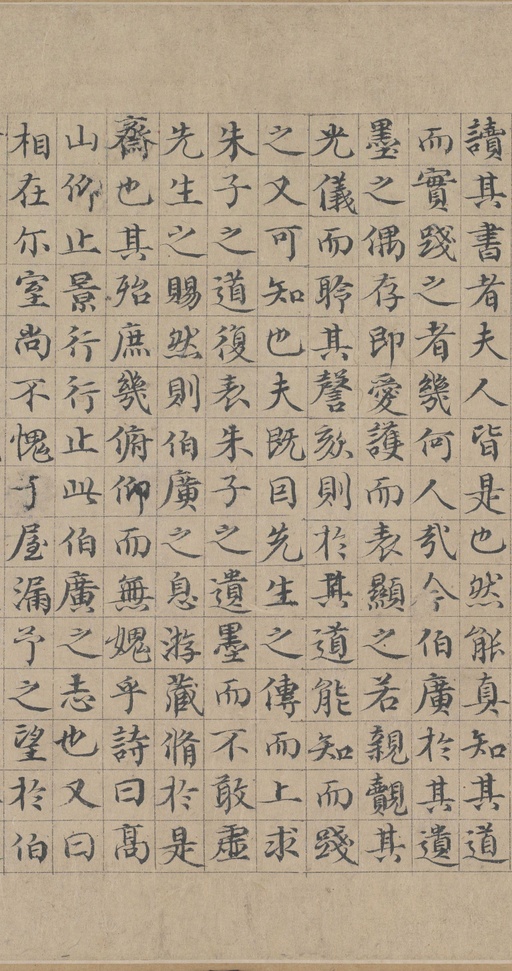 讀其書者夫人皆是也然能真知其道
而實踐之者幾何人㢤今伯廣於其遺
墨之偶存即愛護而表顯之若親覿其
光儀而聆其謦欬則於其道能知而踐
之又可知也夫既因先生之傳而上求
朱子之道復表朱子之遺墨而不敢虛
先生之賜然則伯廣之息游藏脩於是
齋也其殆庶幾俯仰而無媿乎詩曰高
山仰止景行行止此伯廣之志也又曰
相在尓室尚不愧于屋漏予之望於伯